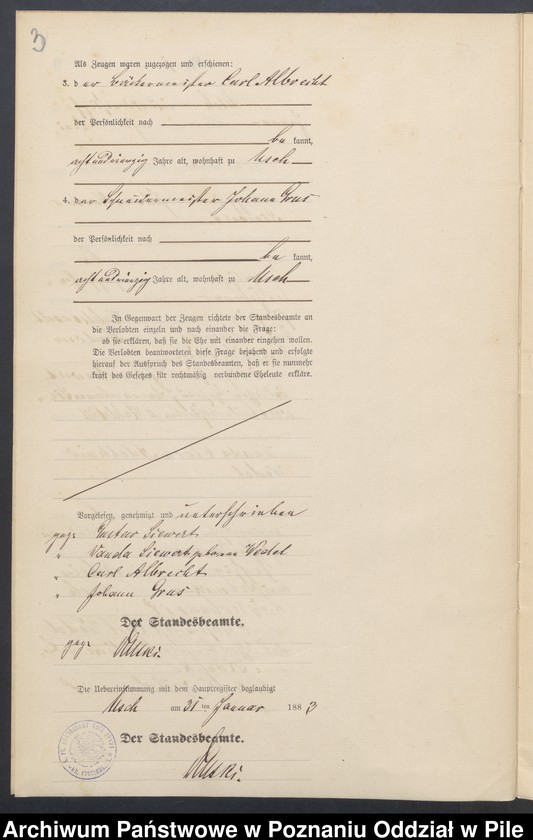 3
Als Zeugen waren zugezogen und erschienen:
3. der Bäckermeister Carl Albrecht
der Persönlichkeit nach
be kannt,
achtundvierzig Jahre alt, wohnhaft zu Usch
4. der Schneidermeister Johann Grus
der Persönlichkeit nach
be kannt,
achtundvierzig Jahre alt, wohnhaft zu Usch
In Gegenwart der Zeugen richtete der Standesbeamte an
die Verlobten einzeln und nach einander die Frage:
ob sie erklären, daß sie die Ehe mit einander eingehen wollen.
Die Verlobten beantworteten diese Frage bejahend und erfolgte
hierauf der Ausspruch des Standesbeamten, daß er sie nunmehr
kraft des Gesetzes für rechtmäßig verbundene Eheleute erkläre.
Vorgelesen, genehmigt und unterschrieben
gez. Gustav Siewert
" Wanda Siewert geborene Wedel
" Carl Albrecht
" Johann Grus
Der Standesbeamte.
gez.
Die Uebereinstimmung mit dem Hauptregister beglaubigt
Usch am 31 ten Januar 1883
Der Standesbeamte.
Archiwum Państwowe w Poznaniu Oddział w Pile